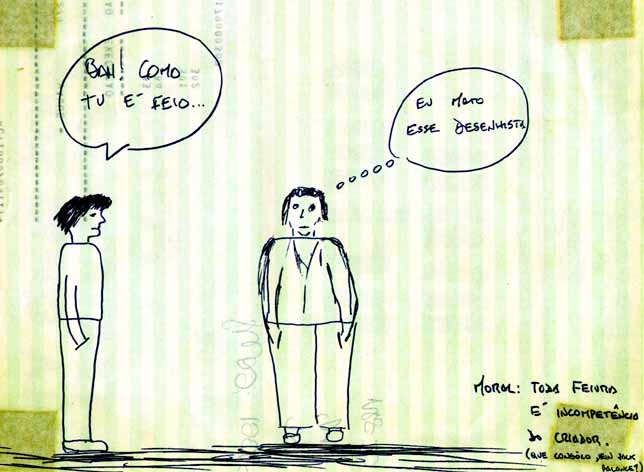 BAH! COMO
TU É FEIO...
EU MATO
ESSE DESENHISTA
MORAL: TODA FEIURA
É INCOMPETÊNCIA
DO CRIADOR.
(QUE CONSOLO, HEIN JACK
PALANCE?)